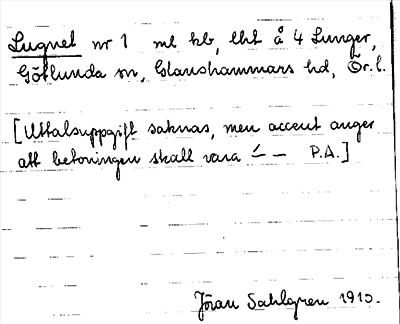 Lugnet nr 1 ml kb, lht å 4 Lunger,
Götlunda sn, Glanshammars hd, Ör. l.
[Uttalsuppgift saknas, men accent anger
att betoningen skall vara ´– – P.A.]
Jöran Sahlgren 1910.